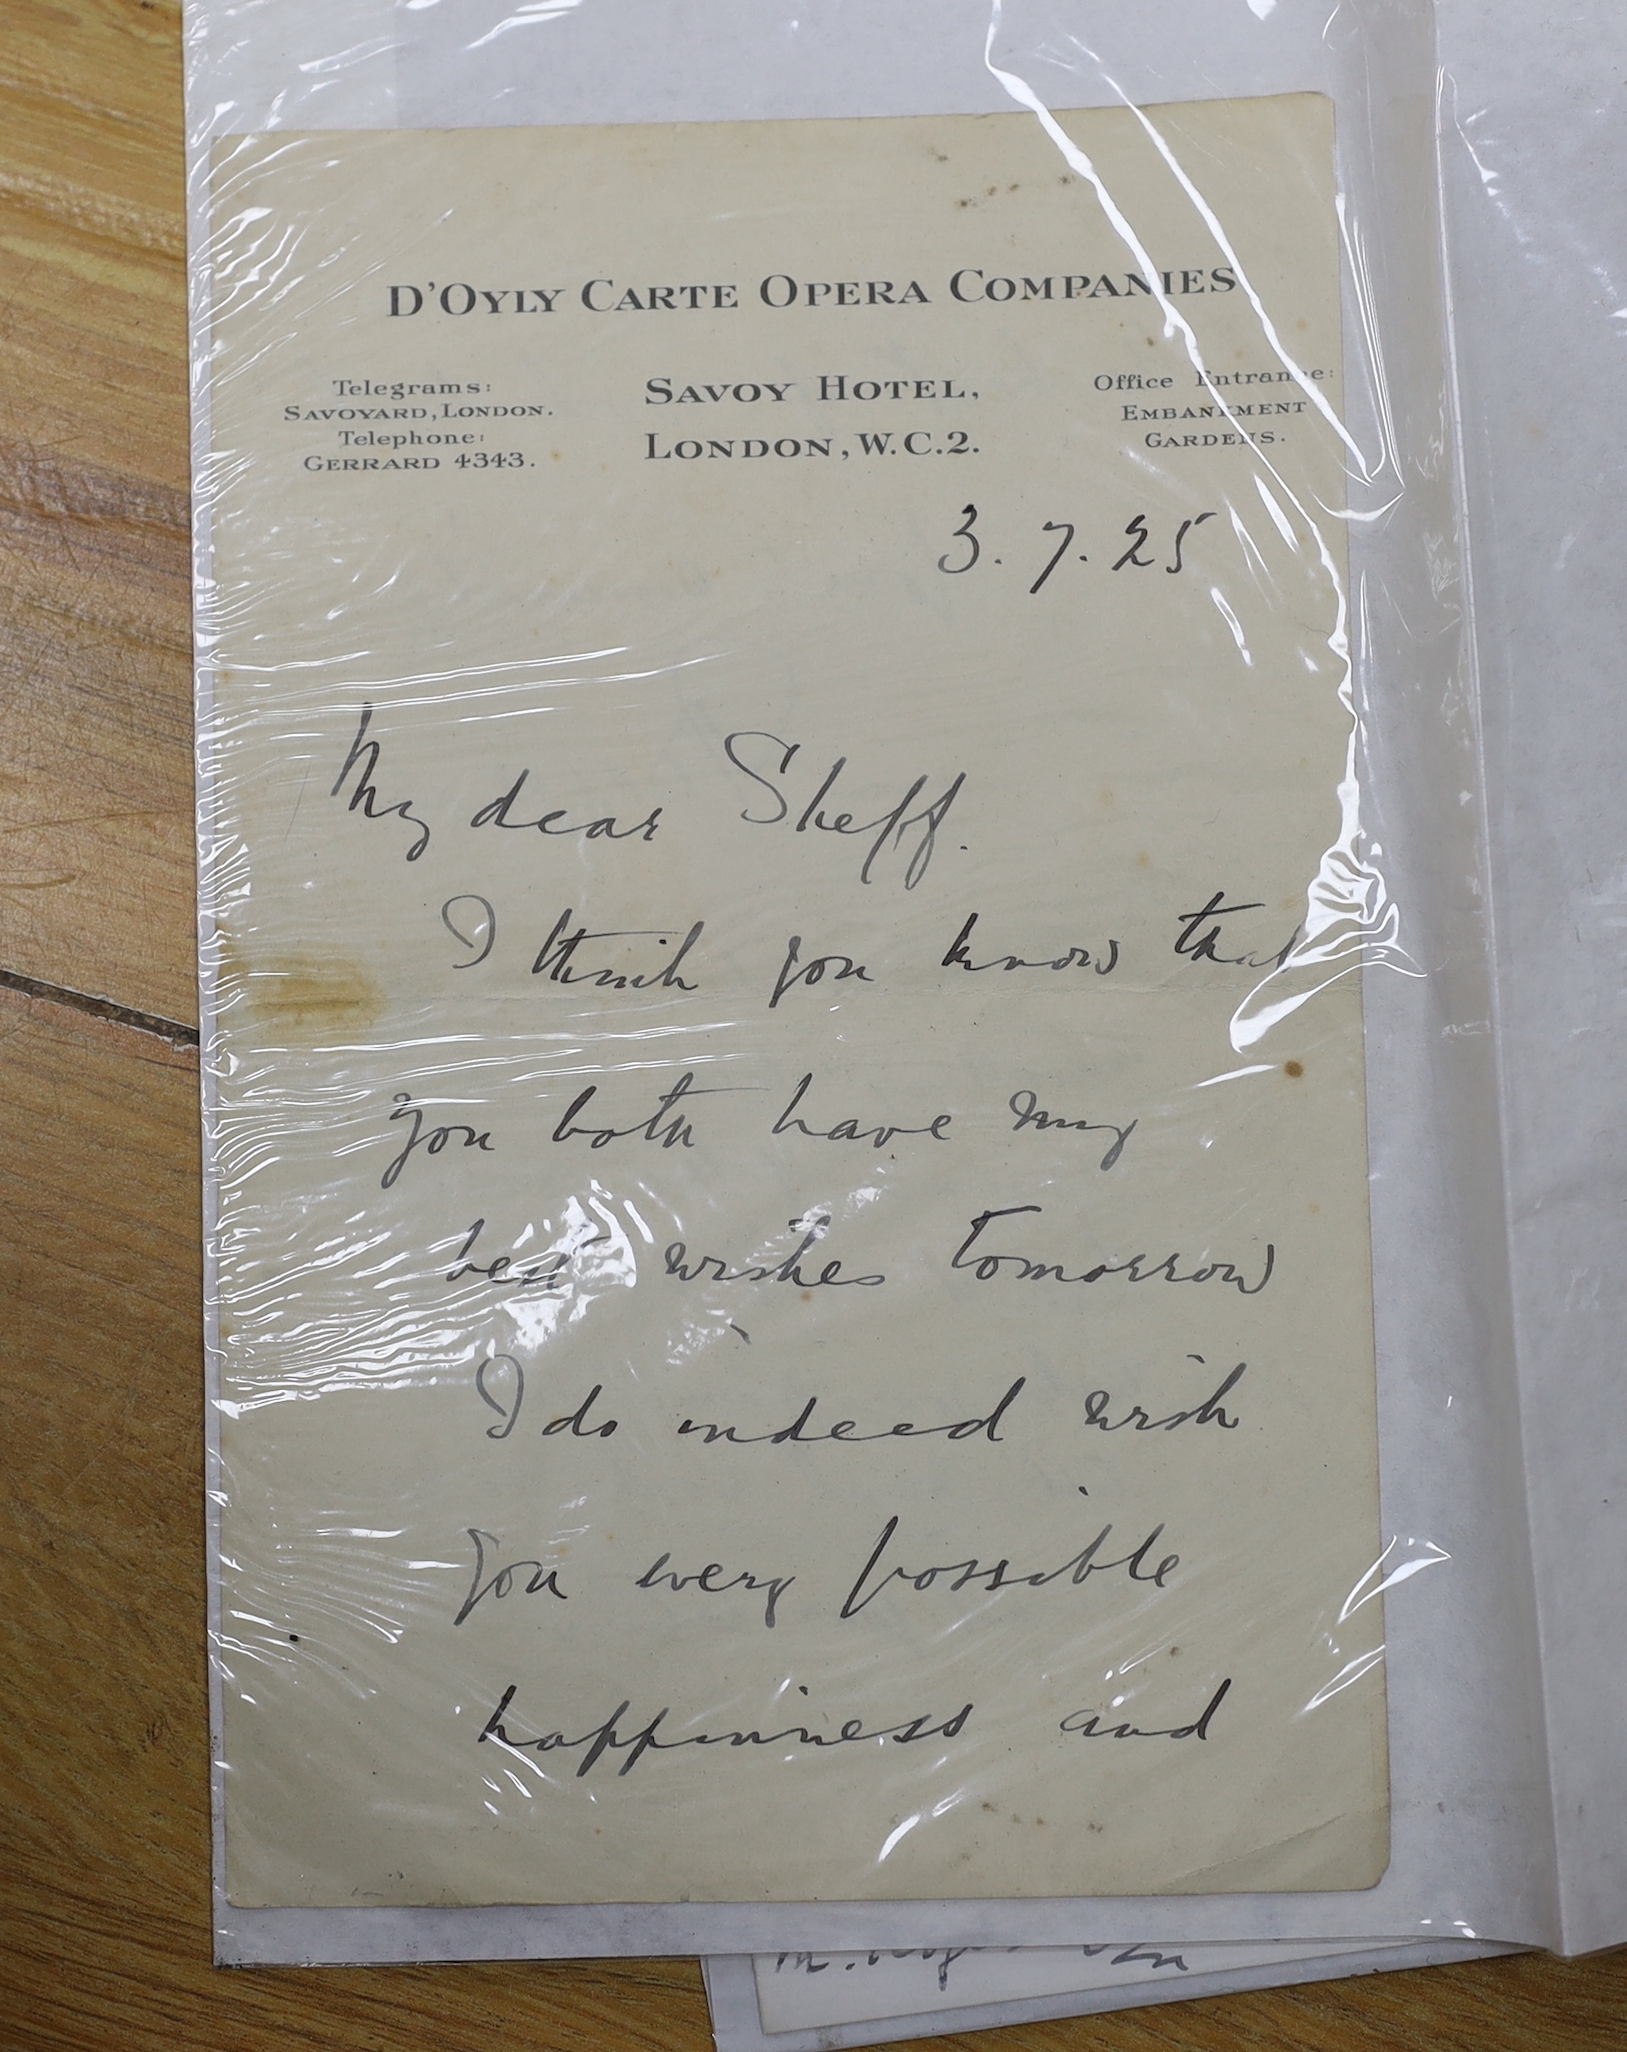 D'OYLY CARTE OPERA COMPANIES
Telegrams:
SAVOYARD, LONDON.
Telephone:
GERRARD 4343.
SAVOY HOTEL,
LONDON, W.C.2.
Office Entrance:
EMBANKMENT
GARDENS.
3.7.25
My dear Sheff.
I think you know that
you both have my
best wishes tomorrow
I do indeed wish
you every possible
happiness and